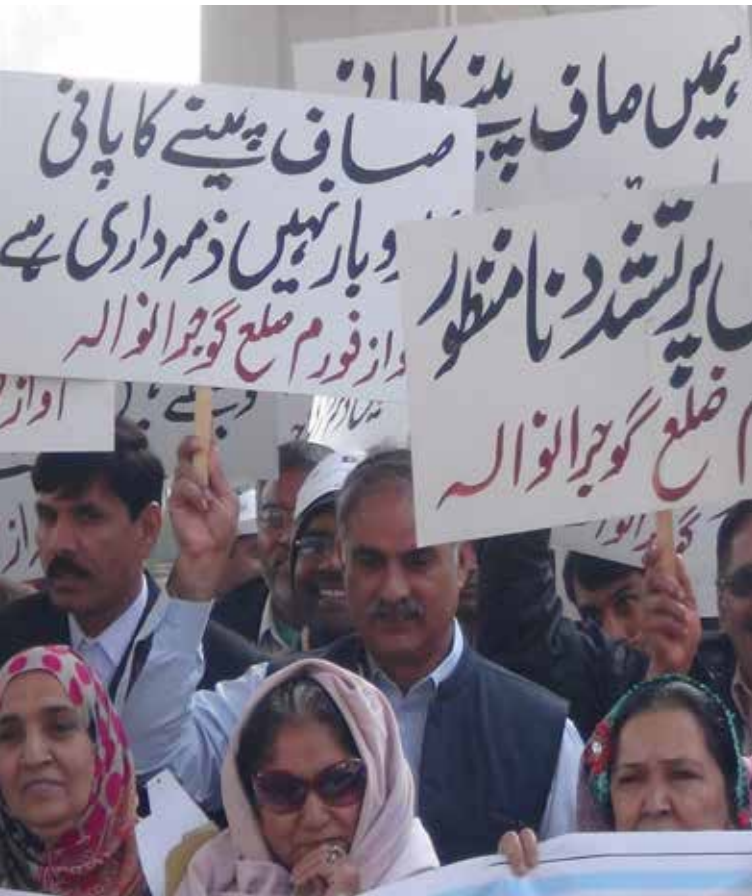 ہمیں صاف پینے کا پانی
صاف پینے کا پانی
کاروبار نہیں ذمہ داری ہے
آواز فورم ضلع گوجرانوالہ
پر تشدد نامنظور
ضلع گوجرانوالہ
آواز
گوجرانوالہ